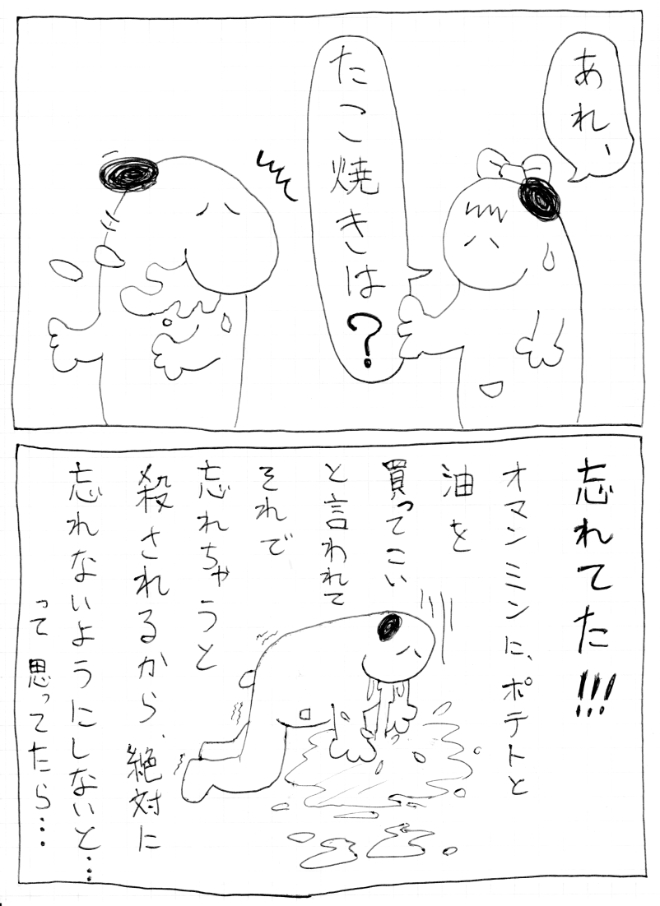 あれ、
たこ焼きは?
忘れてた!!!
オマンミンに、ポテトと
油を
買ってこい
と言われて
それで
忘れちゃうと
殺されるから、絶対に
忘れないようにしないと…
って思ってたら…